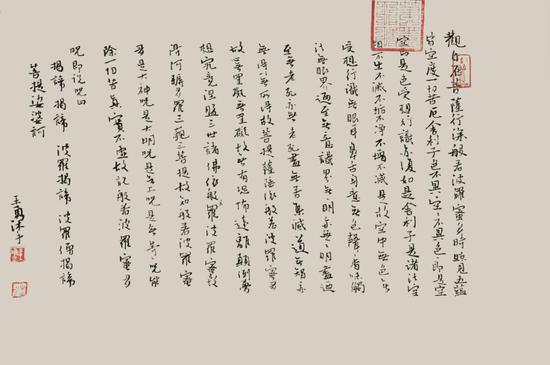 觀自在菩薩行深般若波羅蜜多時照見五蘊
皆空度一切苦厄舍利子色不異空空不異色色即是空
空即是色受想行識亦復如是舍利子是諸法空
相不生不滅不垢不淨不增不減是故空中無色無
受想行識無眼耳鼻舌身意無色聲香味觸
法無眼界乃至無意識界無無明亦無無明盡乃
至無老死亦無老死盡無苦集滅道無智亦
無得以無所得故菩提薩埵依般若波羅蜜多
故心無罣礙無罣礙故無有恐怖遠離顛倒夢
想究竟涅槃三世諸佛依般若波羅蜜多故
得阿耨多羅三藐三菩提故知般若波羅蜜
多是大神咒是大明咒是無上咒是無等等咒能
除一切苦真實不虛故說般若波羅蜜多
咒即說咒曰
揭諦 揭諦 波羅揭諦 波羅僧揭諦
菩提娑婆訶
王勇沐手